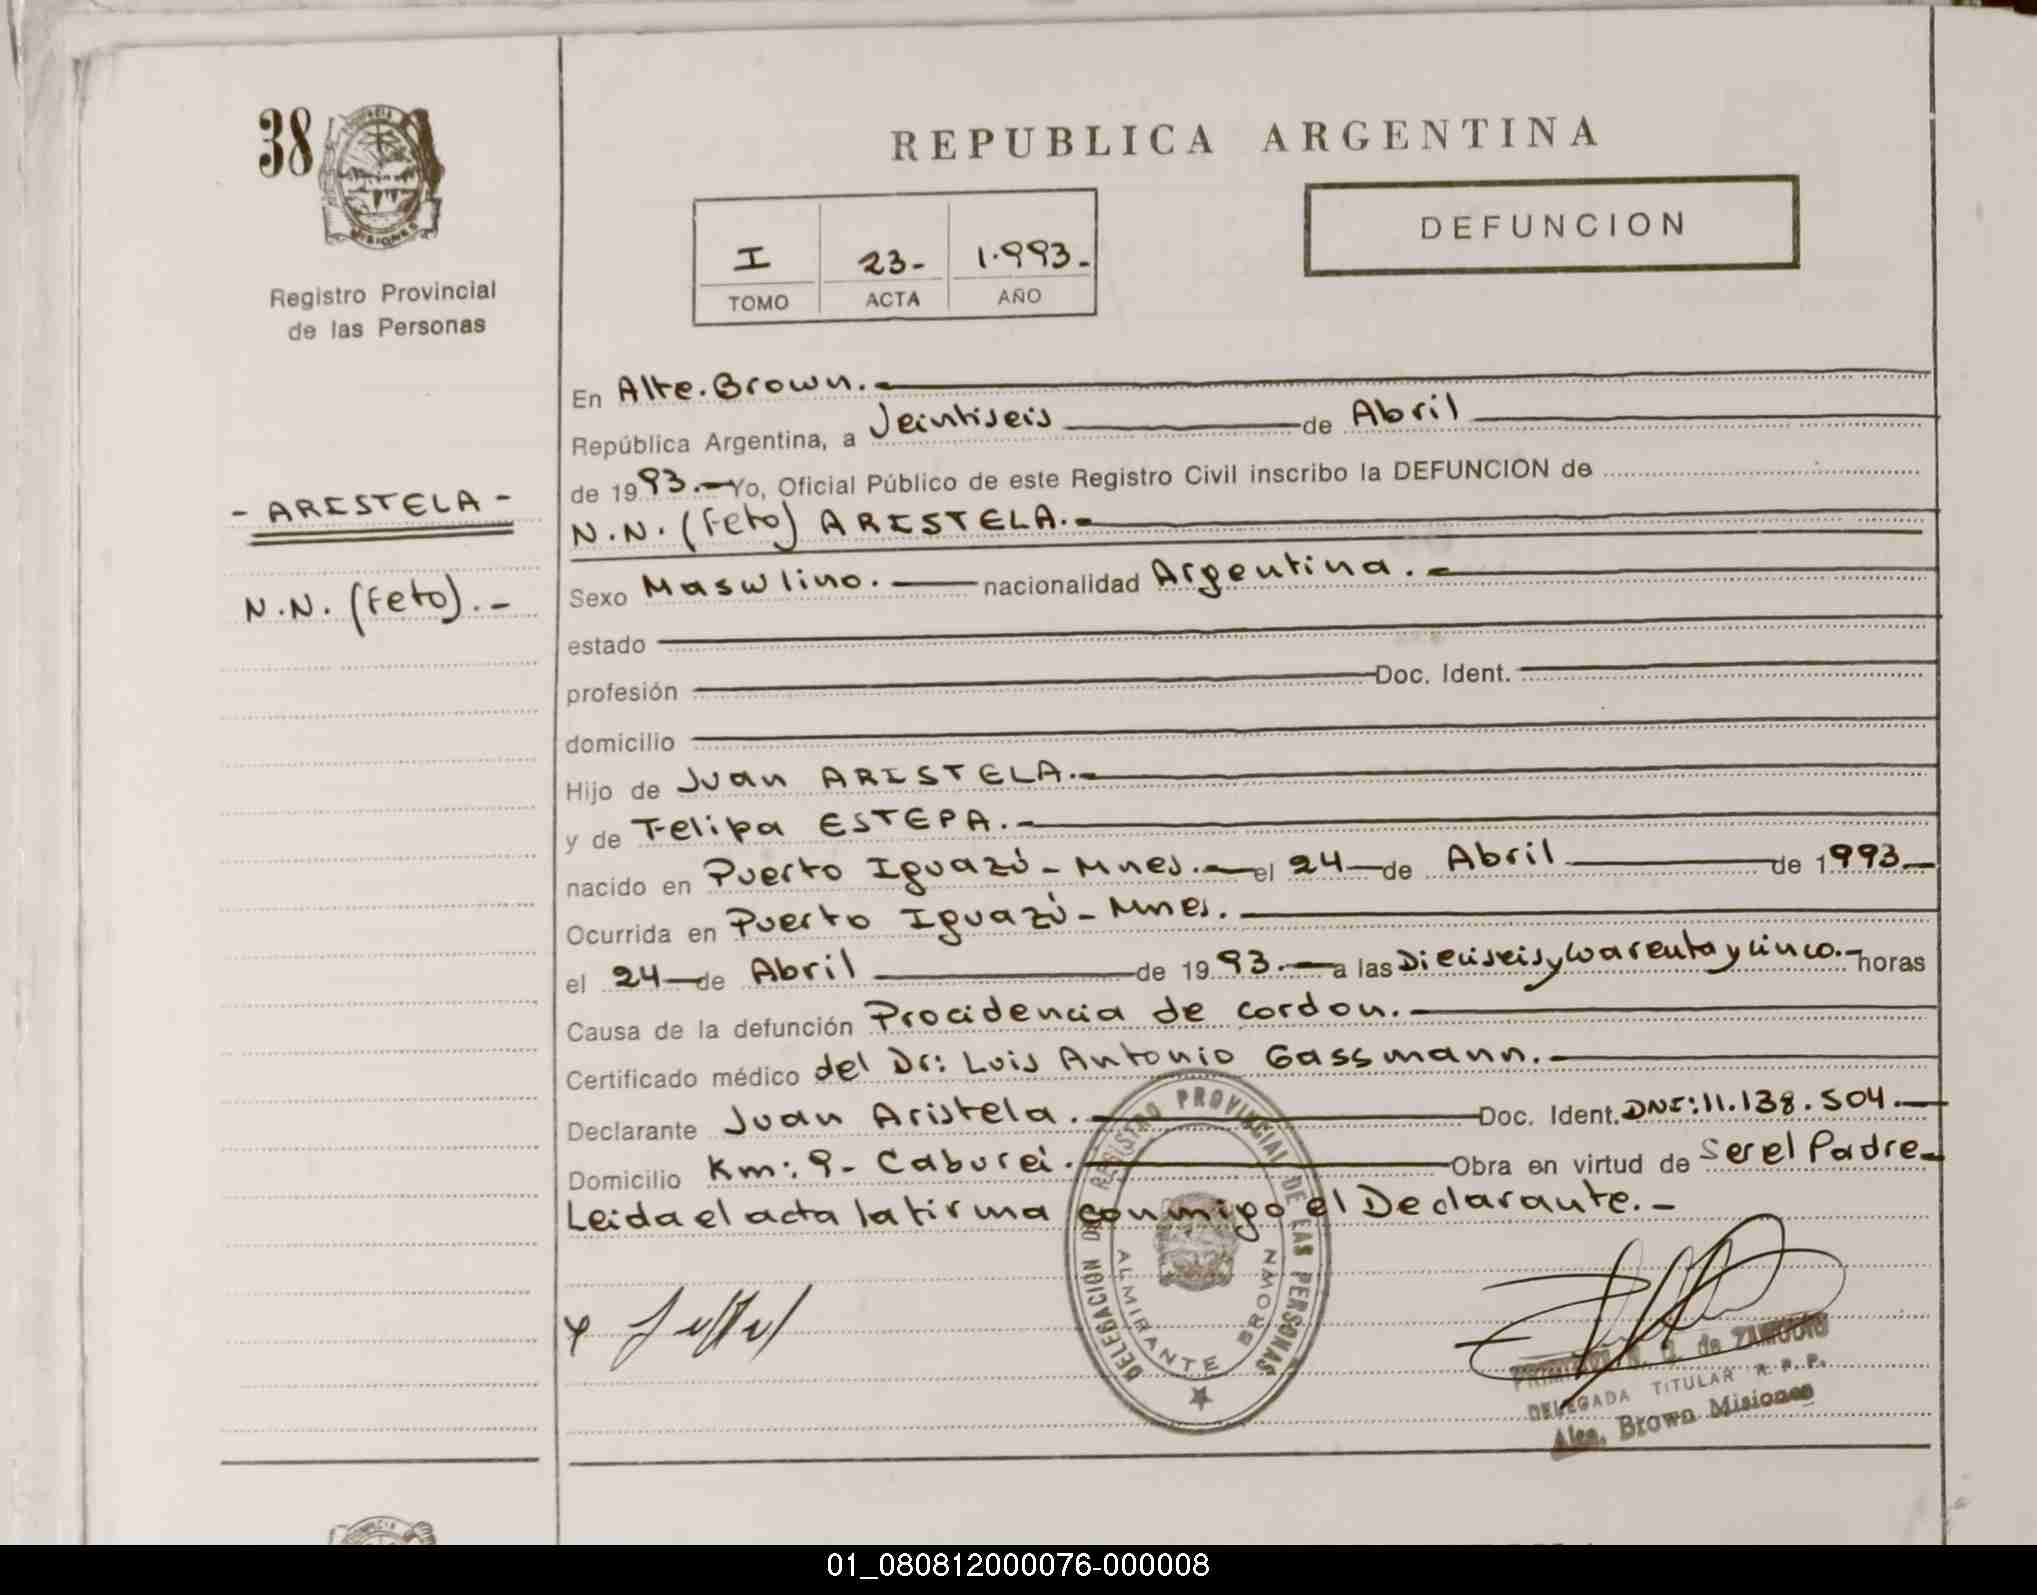 38
MISIONES
Registro Provincial
de las Personas
- ARISTELA -
N.N. (Feto).-
REPUBLICA ARGENTINA
DEFUNCION
I 23- 1.993.-
TOMO ACTA AÑO
En Alte. Brown.-
República Argentina, a Veintiseis de Abril
de 1993.- Yo, Oficial Público de este Registro Civil inscribo la DEFUNCION de
N.N. (Feto) ARISTELA.-
Sexo Masculino.- nacionalidad Argentina.-
estado
profesión Doc. Ident.
domicilio
Hijo de Juan ARISTELA.-
y de Felipa ESTEPA.-
nacido en Puerto Iguazú - Mnes.- el 24 de Abril de 1993.-
Ocurrida en Puerto Iguazú - Mnes.
el 24 de Abril de 1993.- a las Dieciseis y Cuarenta y cinco.- horas
Causa de la defunción Procidencia de cordon.-
Certificado médico del Dr: Luis Antonio Gassmann.-
Declarante Juan Aristela.- Doc. Ident. DNI: 11.138.504.-
Domicilio Km: 9- Caburei.- Obra en virtud de Ser el Padre-
Leida el acta la firma conmigo el Declarante.-
DELEGACION DEL REGISTRO PROVINCIAL DE LAS PERSONAS
ALMIRANTE BROWN
de ZAMUDIO
DELEGADA TITULAR R.P.P.
Brown Misiones
01_080812000076-000008